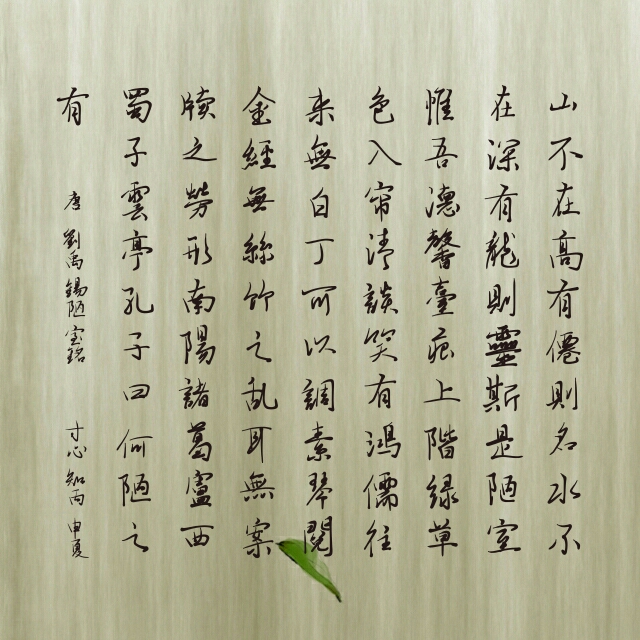 山不在高有僊則名水不
在深有龍則靈斯是陋室
惟吾德馨臺痕上階緑草
色入帘清談笑有鴻儒往
来無白丁可以調素琴閱
金經無絲竹之乱耳無案
牘之勞形南陽諸葛廬西
蜀子雲亭孔子曰何陋之
有 唐 劉禹錫陋室銘 寸心知 丙申夏